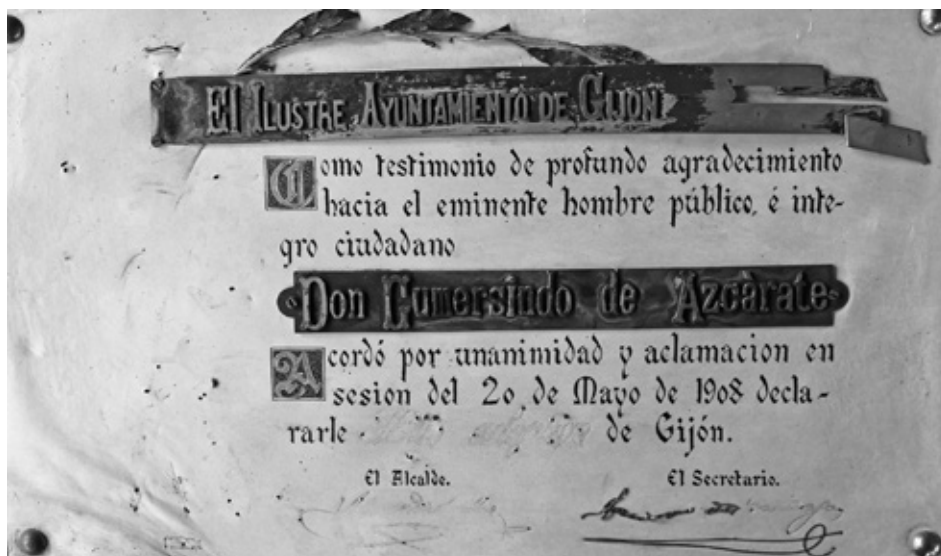 El ILUSTRE AYUNTAMIENTO DE GIJON
Como testimonio de profundo agradecimiento
hacia el eminente hombre público, é inte-
gro ciudadano
Don Gumersindo de Azcárate
Acordó por unanimidad y aclamacion en
sesion del 20 de Mayo de 1908 decla-
rarle de Gijón.
El Alcalde. El Secretario.